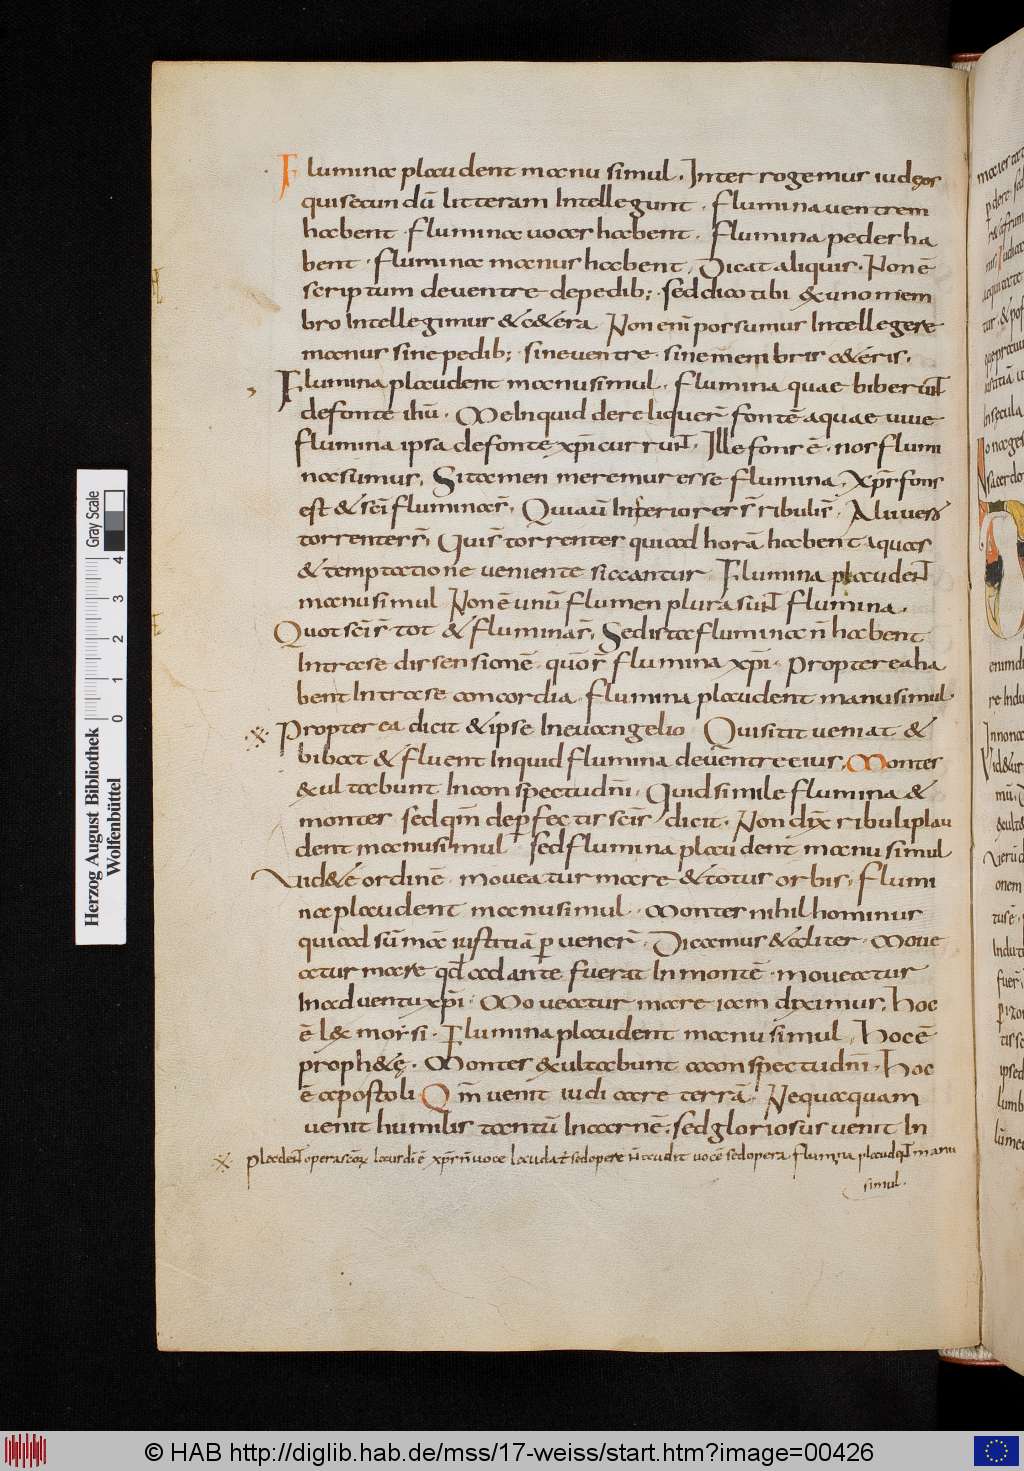 Flumina plaudent manu simul. Interrogemur iudeos
qui secundū litteram Intellegunt. flumina ventrem
habent. flumina voces habent. flumina pedes ha
bent. flumina manus habent. Dicat aliquis. Non ē
scriptum de ventre de pedib; sed dico tibi & uno mem
bro Intellegimus & cetera. Non eni possumus Intellegere
manus sine pedib; sine ventre. sine membris ceteris.
Flumina plaudent manu simul. flumina quae biberunt
de fonte ihū. Me Inquid dereliquer̄ fontē aquae vivae
flumina ipsa de fonte xp̄i currunt. Ille fons ē. nos flumi
na sumus. Si tamen meremur esse flumina. xp̄s fons
est & sc̄i flumina s̄. Quia ū Inferiores s̄ ribuli s̄. Alii vero
torrentes s̄. Qui s̄ torrentes qui ad horā habent aquas
& temptatione veniente siccantur Flumina plaudent
manu simul Non ē unū flumen plura sunt flumina.
Quot sc̄i s̄ tot & flumina s̄. Sed ista flumina n̄ habent
Intra se dissensionē. quō s̄ flumina xp̄i. propterea ha
bent Intra se concordia. flumina plaudent manu simul.
Propterea dicit & ipse In evangelio Qui sitit veniat &
bibat & fluent Inquid flumina de ventre eius. Montes
exultabunt In conspectu dn̄i. Quid simile flumina &
montes. sed qm̄ de perfectis sc̄is dicit. Non dix̄ ribuli plau
dent manu simul sed flumina plaudent manu simul
Videte ordinē. moveatur mare & totus orbis. flumi
na plaudent manu simul. Montes nihil hominus
qui ad sūmā iustitiā pvener̄. Dicamus & aliter. Move
atur mare qd̄ ad ante fuerat In montē. moveatur
In adventu xp̄i. Moveatur mare iam diximus. Hoc
ē lex morsi. Flumina plaudent manu simul. Hoc ē
prophetę. Montes exultabunt a conspectu dn̄i. Hoc
ē apostoli Qm̄ venit iudicare terrā. Nequaquam
venit humilis tantū In carnē. sed gloriosus venit In
plaudent opera xp̄s n̄ voce laudat sed opere n̄ audit vocē sed opera flumina plaudent manu
simul.
Herzog August Bibliothek
Wolfenbüttel
0 1 2 3 4
Gray Scale
© HAB http://diglib.hab.de/mss/17-weiss/start.htm?image=00426